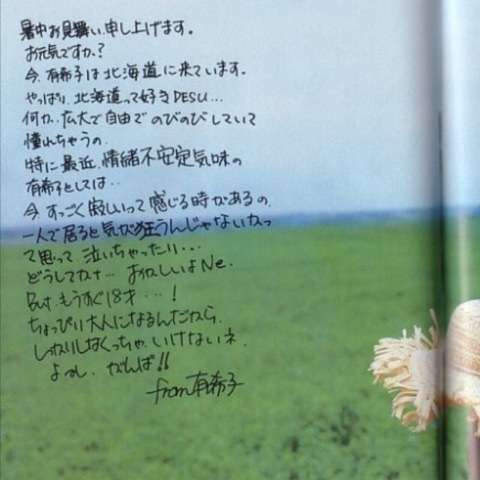 暑中お見舞い申し上げます。
お元気ですか?
今、有希子は北海道に来ています。
やっぱり、北海道って好きDESU...
何か、広大で自由でのびのびしていて
憧れちゃうの。
特に最近、情緒不安定気味の
有希子としては..
今、すっごく寂しいって感じる時があるの。
一人で居ると気が狂うんじゃないかっ
て思って泣いちゃったり...
どうしてかナ... おかしいよNe.
But、もうすぐ18才...!
ちょっぴり大人になるんだから、
しっかりしなくっちゃ、いけないネ。
よーし、がんば!!
from有希子